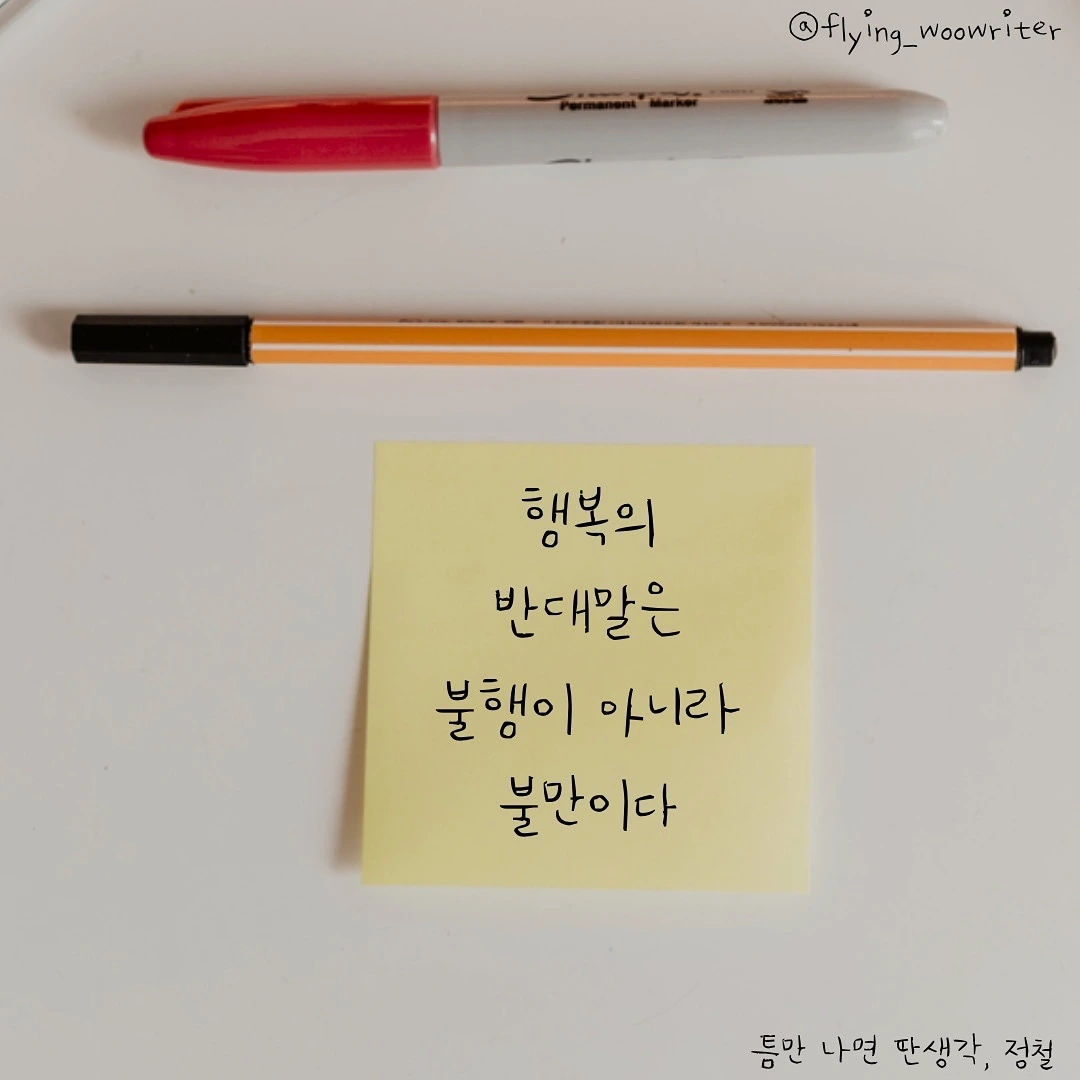 @flying_woowriter
Permanent Marker
행복의
반대말은
불행이 아니라
불만이다
틈만 나면 딴생각, 정철